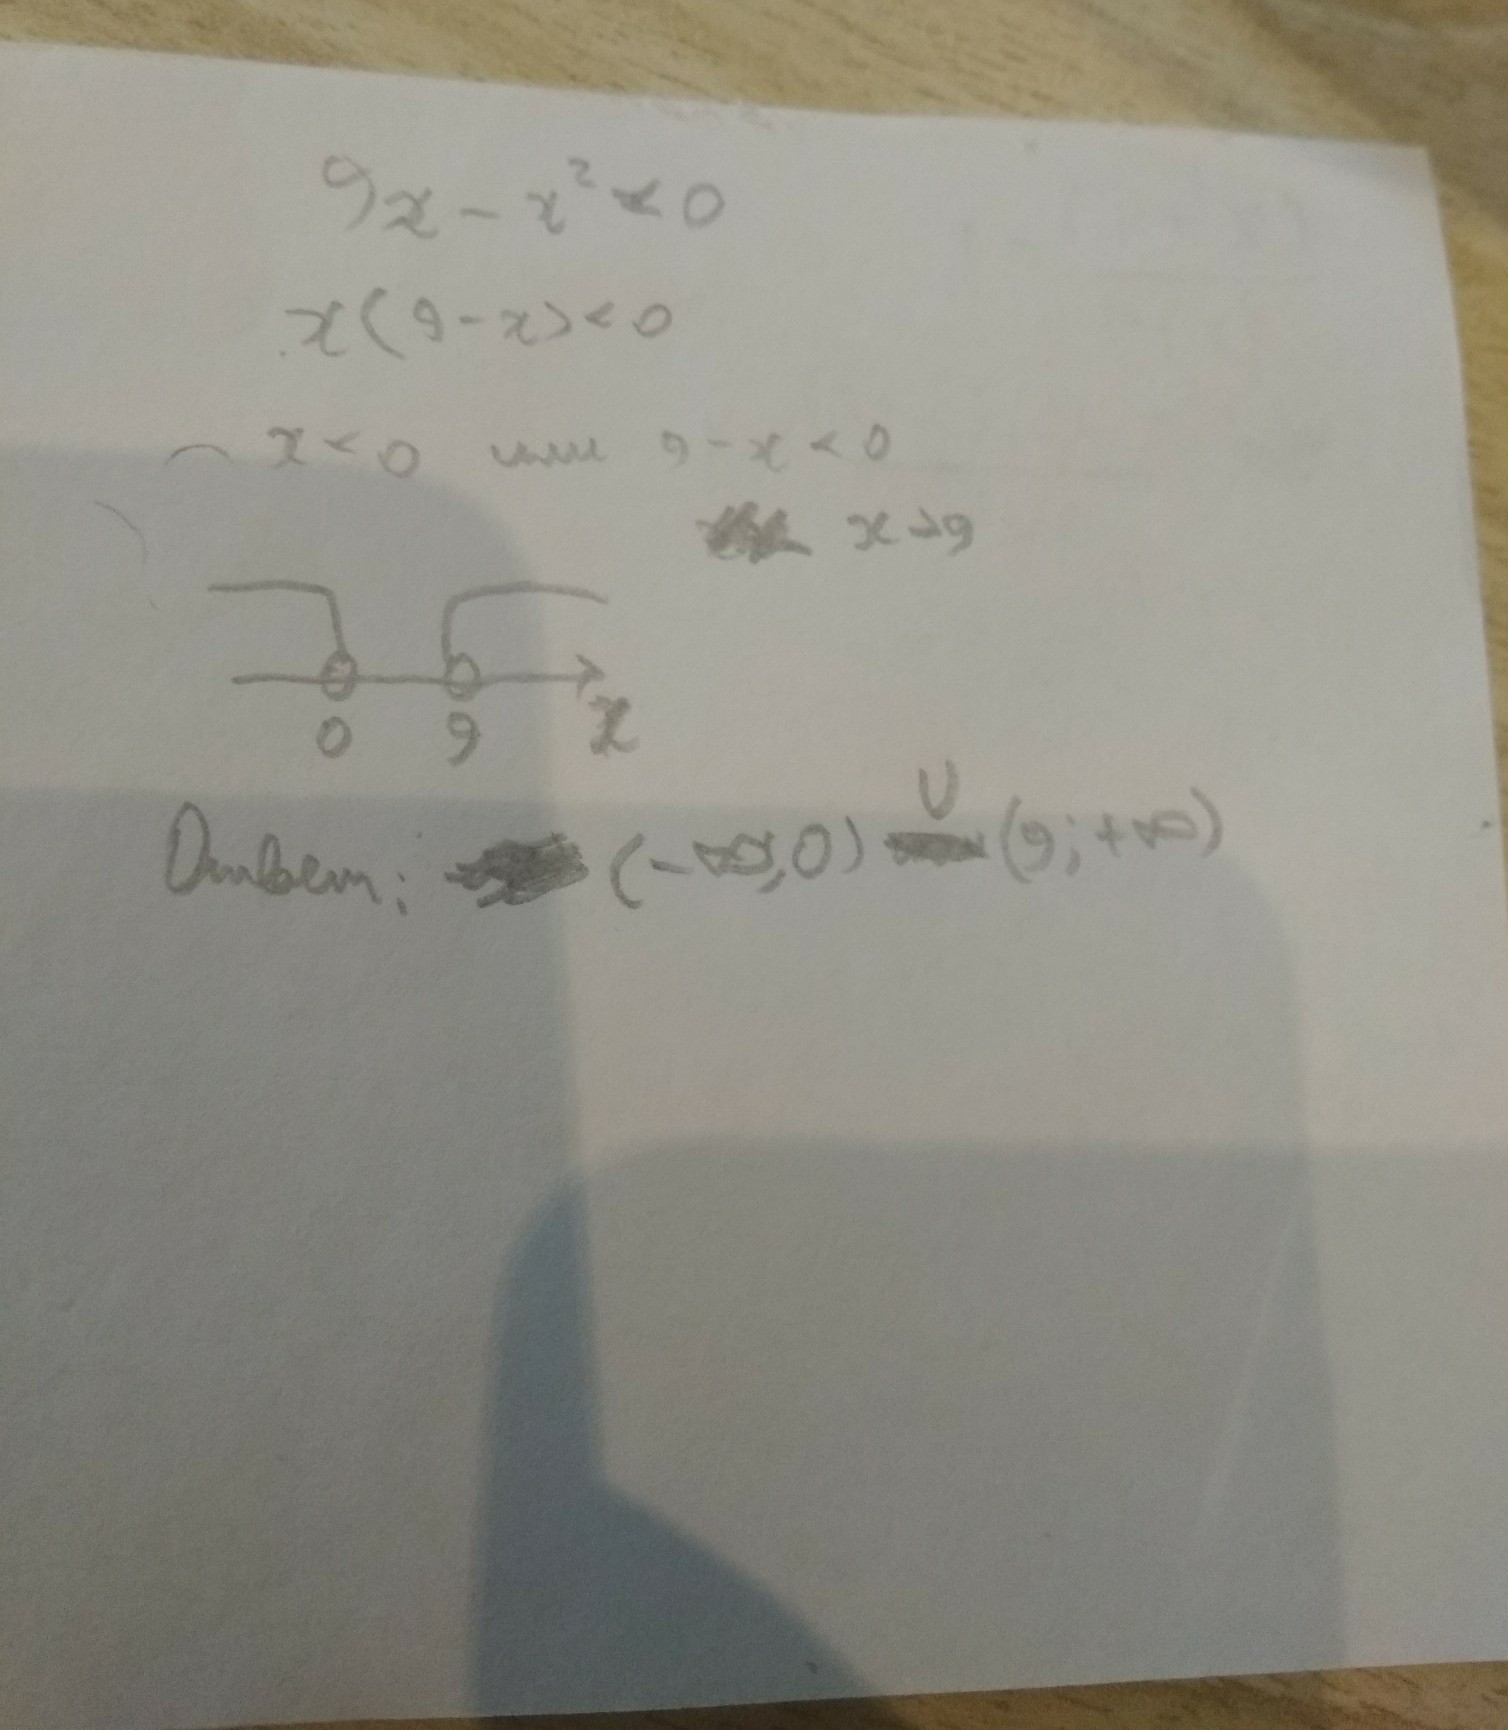 9x - x² < 0
x(9-x)<0
x<0 или 9-x<0
x>9
0 9 x
Ответ: (-∞;0) ∪ (9;+∞)